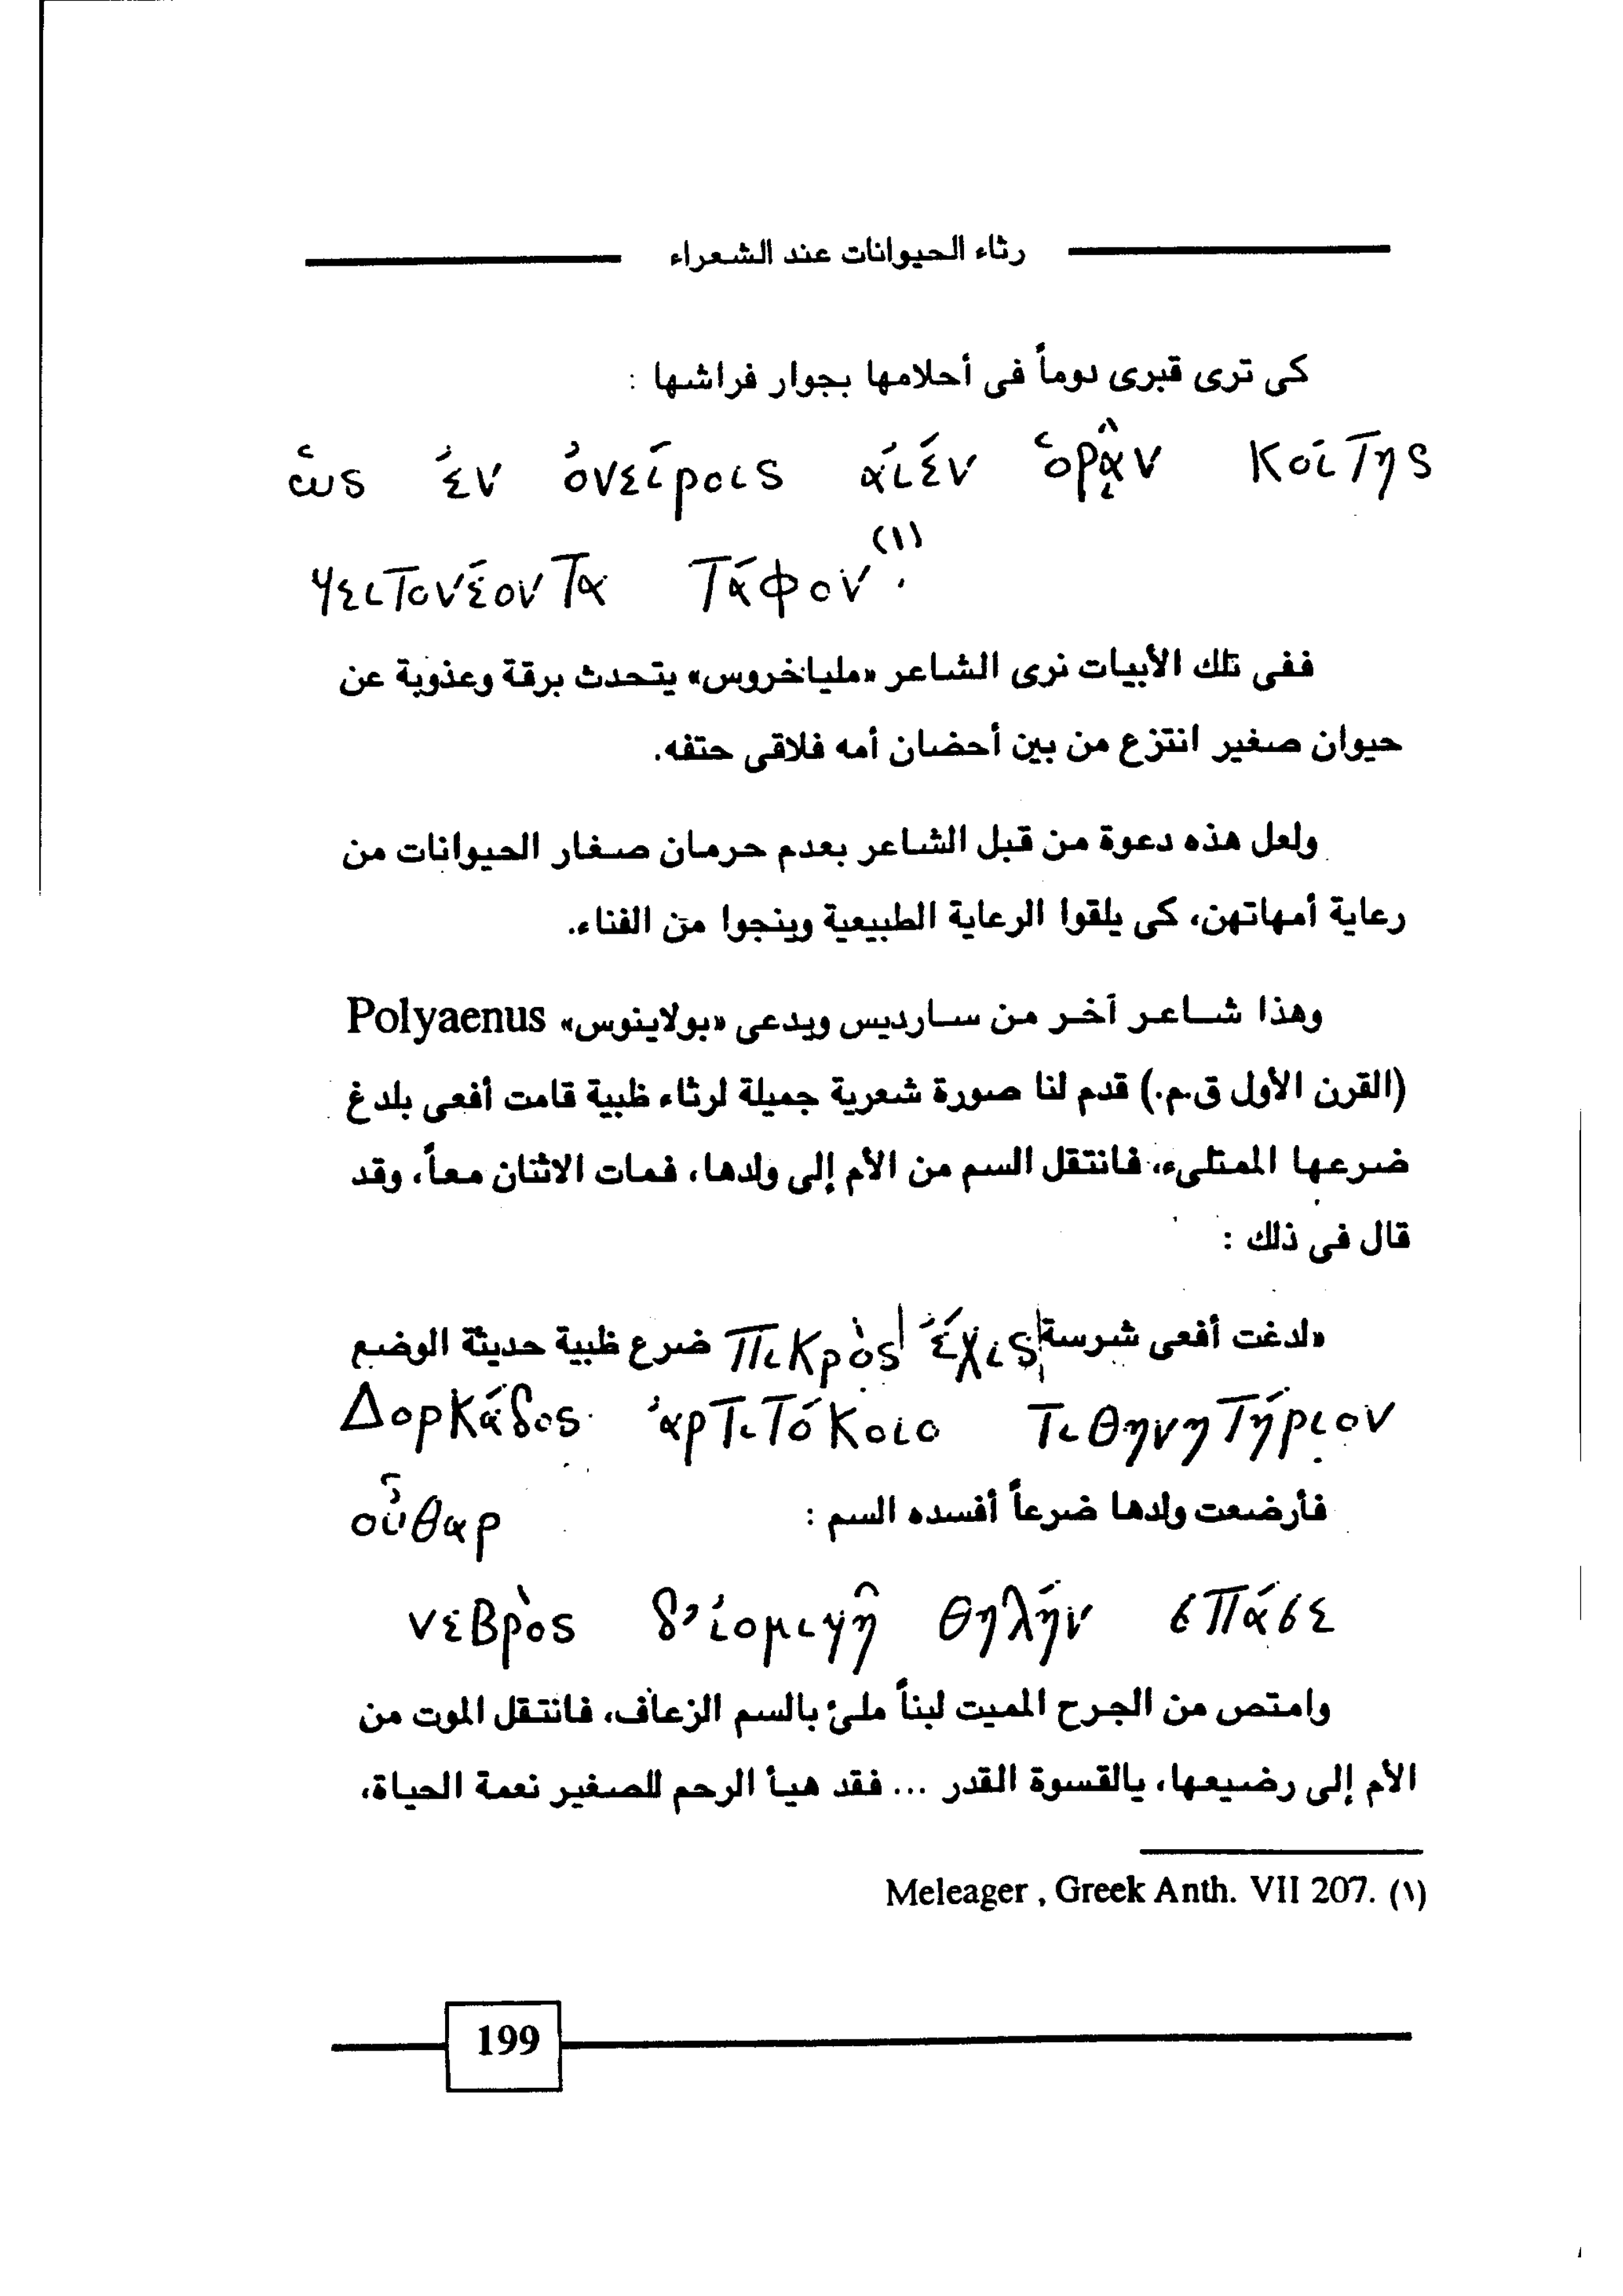 رثاء الحيوانات عند الشعراء
كى ترى قبرى دوماً فى أحلامها بجوار فراشها :
ὡς ἐν ὀνείροις αἰέν ὁρᾷν κοίτης
γειτονέοντα τάφον (١).
ففى تلك الأبيات نرى الشاعر «ملياخروس» يتحدث برقة وعذوبة عن
حيوان صغير انتزع من بين أحضان أمه فلاقى حتفه.
ولعل هذه دعوة من قبل الشاعر بعدم حرمان صغار الحيوانات من
رعاية أمهاتهن، كى يلقوا الرعاية الطبيعية وينجوا من الفناء.
وهذا شاعر آخر من سارديس ويدعى «بولاينوس» Polyaenus
(القرن الأول ق.م.) قدم لنا صورة شعرية جميلة لرثاء ظبية قامت أفعى بلدغ
ضرعها الممتلىء، فانتقل السم من الأم إلى ولدها، فمات الاثنان معاً، وقد
قال فى ذلك :
«لدغت أفعى شرسة πικρὸς ἔχις ضرع ظبية حديثة الوضع
Δορκάδος ἀρτιτόκοιο τιθηνητήριον
فأرضعت ولدها ضرعاً أفسده السم : οὖθαρ
νεβρὸς δ’ ἰομιγῆ θηλήν σπάσε
وامتص من الجرح المميت لبناً ملئ بالسم الزعاف، فانتقل الموت من
الأم إلى رضيعها، يالقسوة القدر ... فقد هيأ الرحم للصغير نعمة الحياة،
(١) Meleager , Greek Anth. VII 207.
199